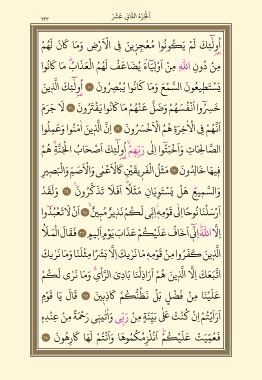 ٢٢٣ اَلْجُزْءُ الثَّانِي عَشَرَ
اُو۬لٰٓئِكَ لَمْ يَكُونُوا مُعْجِز۪ينَ فِي الْاَرْضِ وَمَا كَانَ لَهُمْ
مِنْ دُونِ اللّٰهِ مِنْ اَوْلِيَٓاءَۢ يُضَاعَفُ لَهُمُ الْعَذَابُۜ مَا كَانُوا
يَسْتَط۪يعُونَ السَّمْعَ وَمَا كَانُوا يُبْصِرُونَ ﴿٢٠﴾ اُو۬لٰٓئِكَ الَّذ۪ينَ
خَسِرُٓوا اَنْفُسَهُمْ وَضَلَّ عَنْهُمْ مَا كَانُوا يَفْتَرُونَ ﴿٢١﴾ لَا جَرَمَ
اَنَّهُمْ فِي الْاٰخِرَةِ هُمُ الْاَخْسَرُونَ ﴿٢٢﴾ اِنَّ الَّذ۪ينَ اٰمَنُوا وَعَمِلُوا
الصَّالِحَاتِ وَاَخْبَتُٓوا اِلٰى رَبِّهِمْۙ اُو۬لٰٓئِكَ اَصْحَابُ الْجَنَّةِۚ هُمْ
ف۪يهَا خَالِدُونَ ﴿٢٣﴾ مَثَلُ الْفَر۪يقَيْنِ كَالْاَعْمٰى وَالْاَصَمِّ وَالْبَص۪يرِ
وَالسَّم۪يعِۜ هَلْ يَسْتَوِيَانِ مَثَلًاۜ اَفَلَا تَذَكَّرُونَ۟ ﴿٢٤﴾ وَلَقَدْ
اَرْسَلْنَا نُوحًا اِلٰى قَوْمِه۪ۘ اِنّ۪ي لَكُمْ نَذ۪يرٌ مُب۪ينٌۙ ﴿٢٥﴾ اَنْ لَا تَعْبُدُٓوا
اِلَّا اللّٰهَۜ اِنّ۪ٓي اَخَافُ عَلَيْكُمْ عَذَابَ يَوْمٍ اَل۪يمٍ ﴿٢٦﴾ فَقَالَ الْمَلَاُ
الَّذ۪ينَ كَفَرُوا مِنْ قَوْمِه۪ مَا نَرٰيكَ اِلَّا بَشَرًا مِثْلَنَا وَمَا نَرٰيكَ
اتَّبَعَكَ اِلَّا الَّذ۪ينَ هُمْ اَرَاذِلُنَا بَادِيَ الرَّأْيِۚ وَمَا نَرٰى لَكُمْ
عَلَيْنَا مِنْ فَضْلٍ بَلْ نَظُنُّكُمْ كَاذِب۪ينَ ﴿٢٧﴾ قَالَ يَا قَوْمِ
اَرَاَيْتُمْ اِنْ كُنْتُ عَلٰى بَيِّنَةٍ مِنْ رَبّ۪ي وَاٰتٰين۪ي رَحْمَةً مِنْ عِنْدِه۪
فَعُمِّيَتْ عَلَيْكُمْۜ اَنُلْزِمُكُمُوهَا وَاَنْتُمْ لَهَا كَارِهُونَ ﴿٢٨﴾